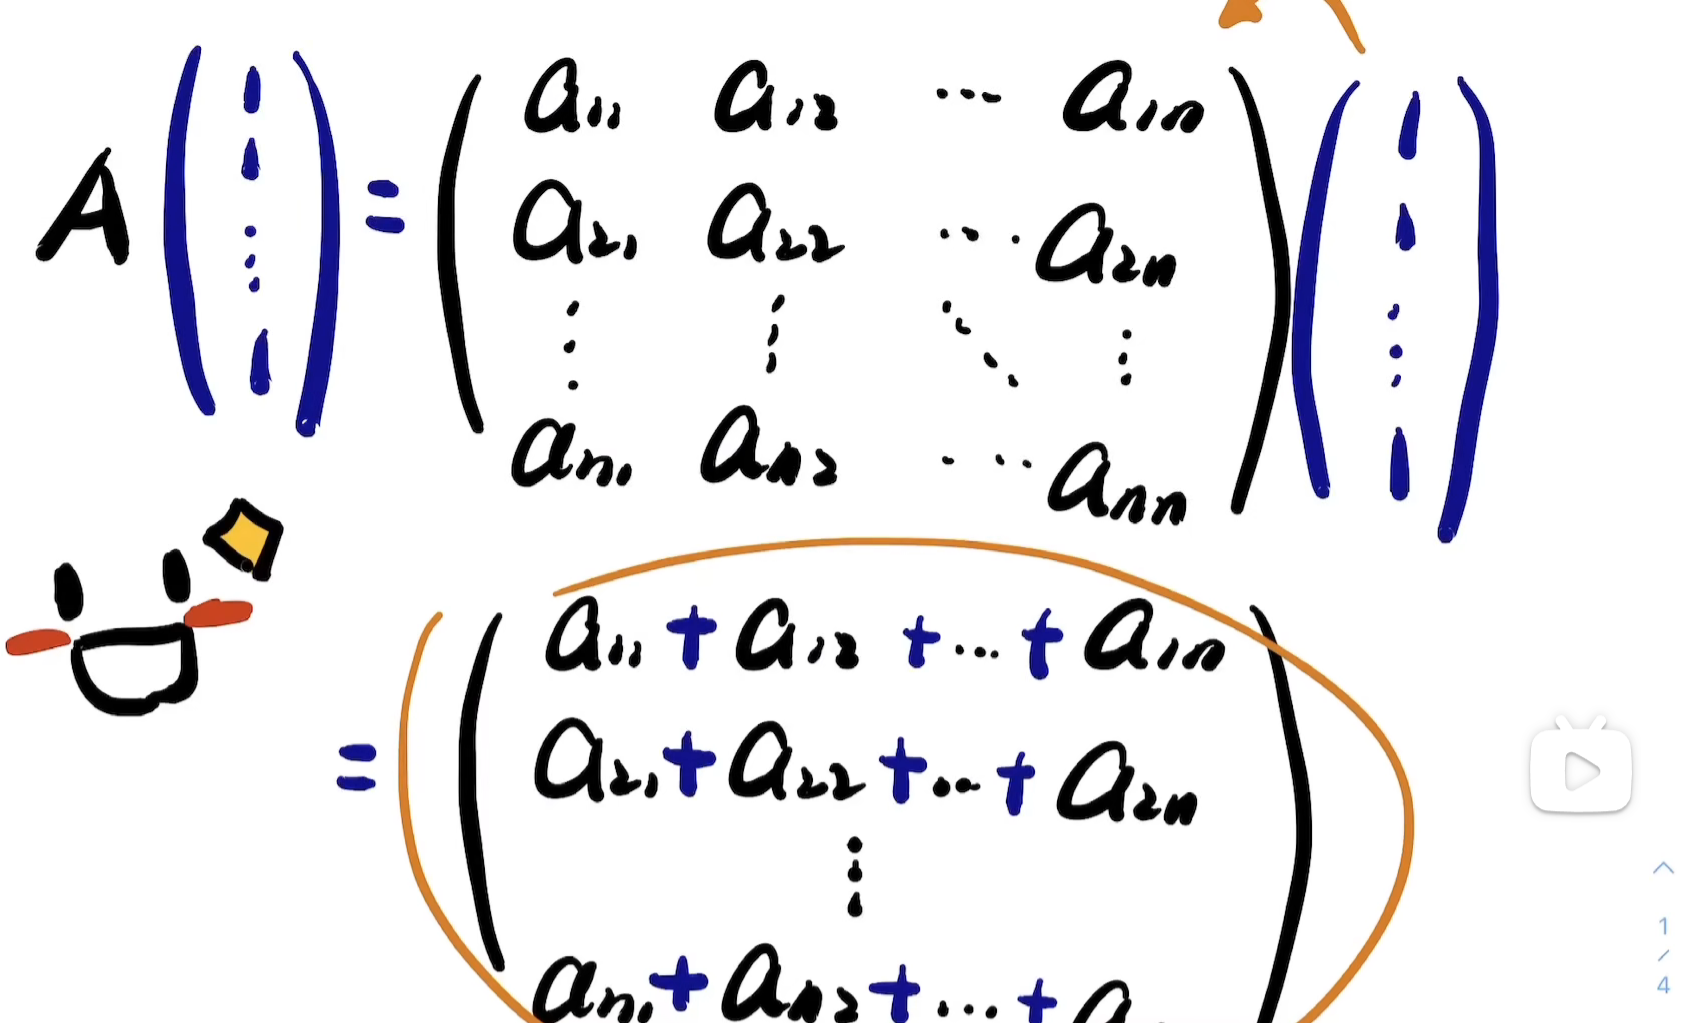 A ( 1 1 ⋮ 1 ) = ( a₁₁ a₁₂ ⋯ a₁ₙ
a₂₁ a₂₂ ⋯ a₂ₙ
⋮ ⋮ ⋱ ⋮
aₙ₁ aₙ₂ ⋯ aₙₙ ) ( 1 1 ⋮ 1 )
= ( a₁₁ + a₁₂ + ⋯ + a₁ₙ
a₂₁ + a₂₂ + ⋯ + a₂ₙ
⋮
aₙ₁ + aₙ₂ + ⋯ + a )
1 / 4